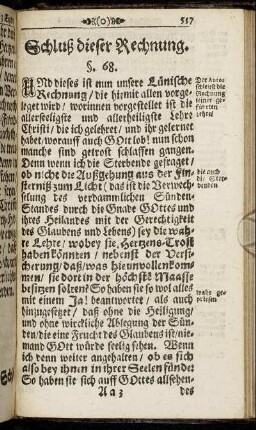 (o) 517
Schluß dieser Rechnung.
§. 68.
UNd dieses ist nun unsere Länische
Rechnung / die hiemit allen vorge-
leget wird / worinnen vorgestellet ist die
allerseeligste und allerheiligste Lehre
Christi / die ich gelehret / und ihr gelernet
habet, worauff auch GOtt lob! nun schon
manche sind getrost schlaffen gangen.
Denn wenn ich die Sterbende gefraget /
ob nicht die Außgehung aus der Fin-
sterniß zum Licht (das ist die Verwech-
selung des verdammlichen Sünden-
Standes durch die Gnade GOttes und
ihres Heilandes mit der Gerechtigkeit
des Glaubens und Lebens) sey die wah-
re Lehre / wobey sie, Hertzens-Trost
haben könten / nebenst der Ver-
sicherung / daß / was hie unvollenkom-
men / sie dort in der höchste Maasse
besitzen solten? So haben sie so wol alles
mit einem Ja! beantwortet / als auch
hinzugesetzet / daß ohne die Heiligung /
und ohne wirckliche Ablegung der Sün-
den / die eine Frucht des Glaubens ist / nie-
mand GOtt würde seelig sehen. Wenn
ich denn weiter angehalten / ob es sich
also bey ihnen in ihrer Seelen fünde?
So haben sie sich auff GOttes allsehen-
Aa 3 des
Der Autor
schliesst die
Rechnung
seiner ge-
führten
Lehre /
die auch
die Ster-
benden
wahr ge-
priesen